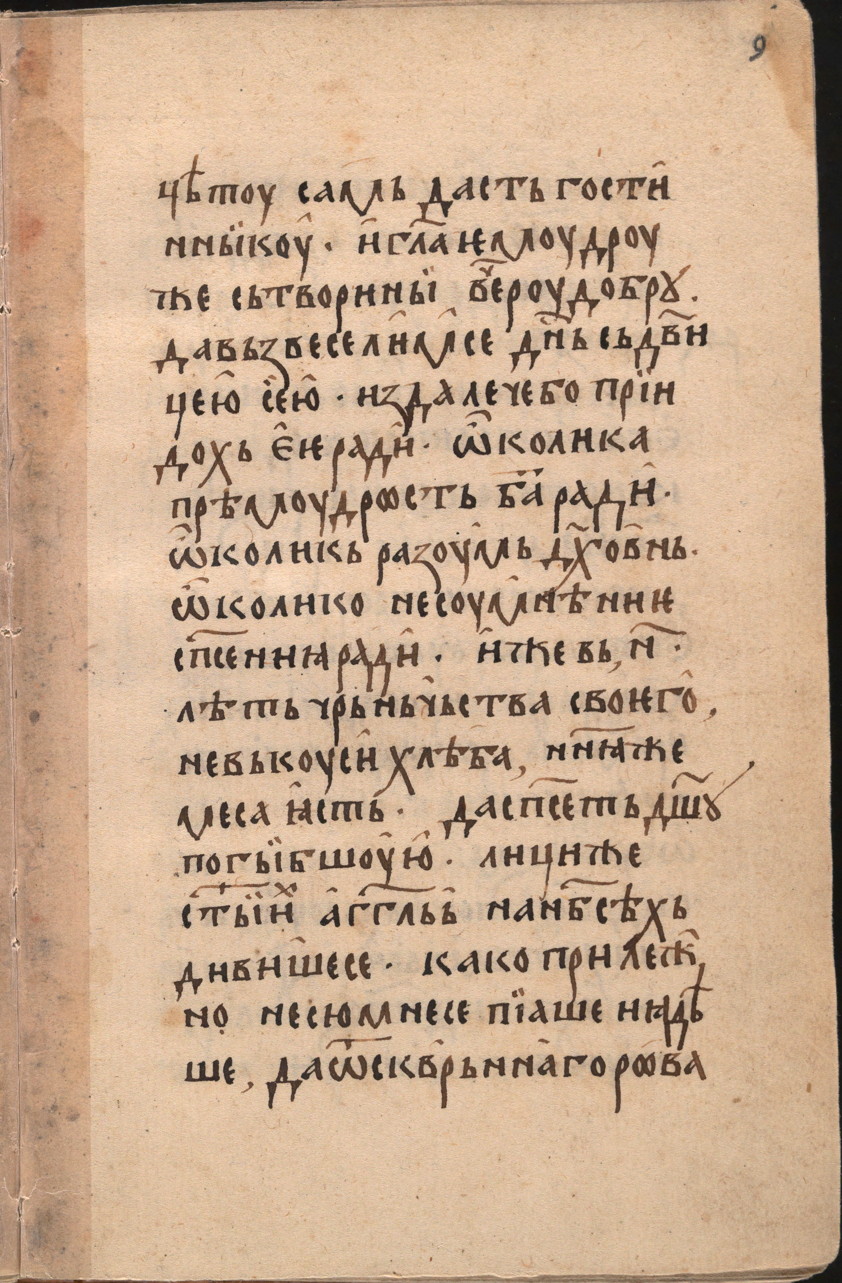 9
цѣтоу самь дасть гости
нныкоу̂ · и҆ гл҃а ѥмоу дроу
же сьтвори ны ве҃ч҇роу добрꙋ .
да вьзвеселим̾се дн҃ь сь дв҃и
цею̂ сїею̂ · из далече бо прїи
дохь е҆ѥ ради̂ · ѽ колика
прѣмоудрѡсть б҃їа ради̂ ·
ѽ коликь разоумь дх҃ов̾нь ·
ѽ колико несоумнѣниѥ
сп҃сениꙗ ради̂ · и҆же вь, н҃ ·
лѣть чрьньчьства своѥго̂ ,
не вькоуси хлѣба , нин҃ꙗ же
меса ꙗ҆сть · да сп҃сеть дш҃ꙋ
погыбшоу̂ю · лици же
ст҃ыих а҆гг҃льь̂ на нб҃сѣхь
дивишесе · како прилеж̾
но несюмнесе пїаше и ꙗдѣ
ше , да ѿ сквр̾ьннаго рѡва